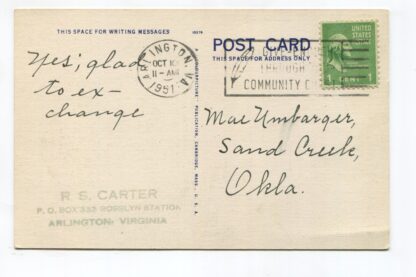 THIS SPACE FOR WRITING MESSAGES
POST CARD
THIS SPACE FOR ADDRESS ONLY
ARLINGTON, VA.
OCT
11-AM
1951
THROUGH
COMMUNITY
UNITED STATES
1 CENT 1
Yes; glad
to ex-
change
Mae Umbarger,
Sand Creek,
Okla.
R. S. CARTER
P. O. BOX 335 ROSSLYN STATION
ARLINGTON, VIRGINIA
PUBLICATION, CAMBRIDGE, MASS., U. S. A.